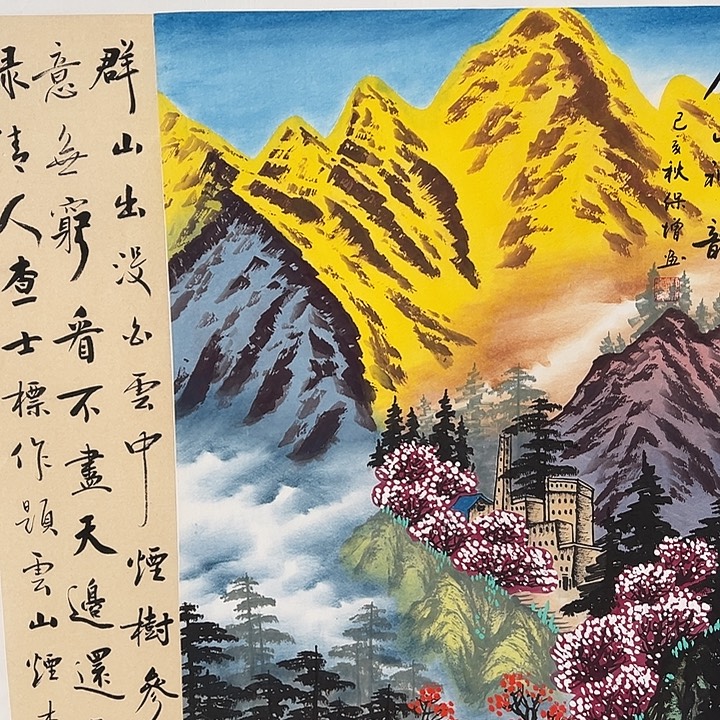 群山出没白雲中煙樹參
意無窮看不盡天邊還
清人查士標作題雲山煙
己亥秋保增画